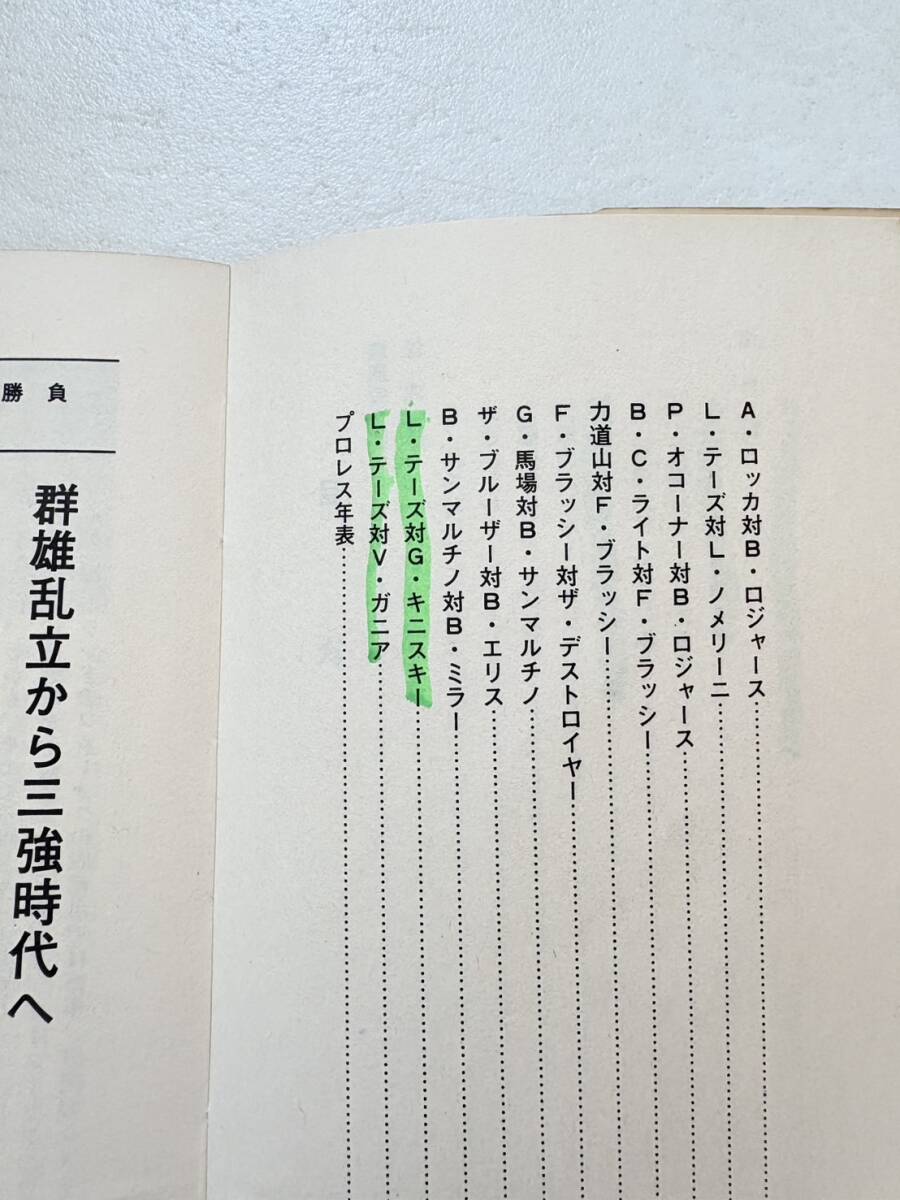 A・ロッカ対B・ロジャース…………
L・テーズ対L・ノメリーニ…………
P・オコーナー対B・ロジャース…………
B・C・ライト対F・ブラッシー…………
力道山対F・ブラッシー…………
F・ブラッシー対ザ・デストロイヤー…………
G・馬場対B・サンマルチノ…………
ザ・ブルーザー対B・エリス…………
B・サンマルチノ対B・ミラー…………
L・テーズ対G・キニスキー…………
L・テーズ対V・ガニア…………
プロレス年表…………
勝負
群雄乱立から三強時代へ